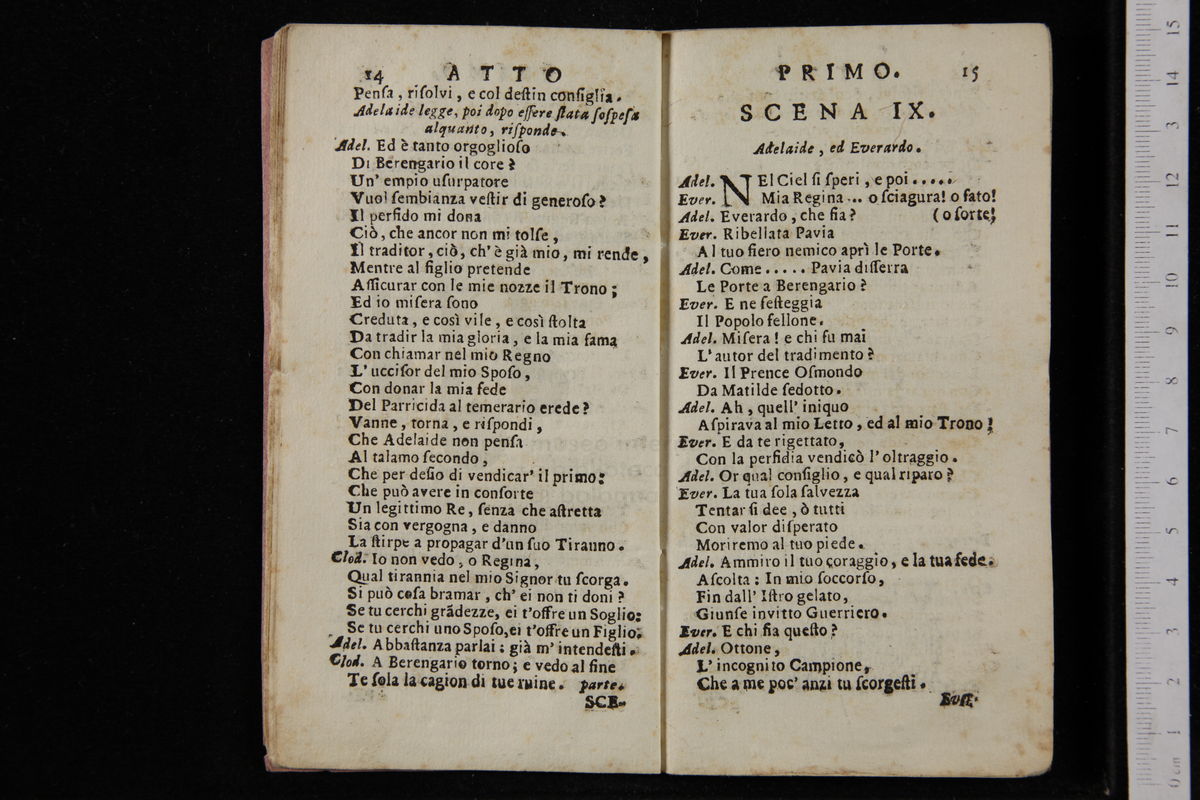 14 ATTO
Penſa, riſolvi, e col deſtin conſiglia.
Adelaide legge, poi dopo eſſere ſtata ſoſpeſa
alquanto, riſponde.
Adel. Ed è tanto orgoglioſo
Di Berengario il core?
Un' empio uſurpatore
Vuol ſembianza veſtir di generoſo?
Il perfido mi dona
Ciò, che ancor non mi tolſe,
Il traditor, ciò, ch' è già mio, mi rende,
Mentre al figlio pretende
Aſſicurar con le mie nozze il Trono;
Ed io miſera ſono
Creduta, e così vile, e così ſtolta
Da tradir la mia gloria, e la mia fama
Con chiamar nel mio Regno
L' ucciſor del mio Spoſo,
Con donar la mia fede
Del Parricida al temerario erede?
Vanne, torna, e riſpondi,
Che Adelaide non penſa
Al talamo ſecondo,
Che per deſio di vendicar' il primo:
Che può avere in conſorte
Un legittimo Re, ſenza che aſtretta
Sia con vergogna, e danno
La ſtirpe a propagar d'un ſuo Tiranno.
Clod. Io non vedo, o Regina,
Qual tirannia nel mio Signor tu ſcorga.
Si può coſa bramar, ch' ei non ti doni?
Se tu cerchi grãdezze, ei t'offre un Soglio:
Se tu cerchi uno Spoſo, ei t'offre un Figlio.
Adel. Abbaſtanza parlai: già m' intendeſti.
Clod. A Berengario torno; e vedo al fine
Te ſola la cagion di tue ruine. parte.
SCE-
PRIMO. 15
SCENA IX.
Adelaide, ed Everardo.
Adel. NEl Ciel ſi ſperi, e poi.....
Ever. Mia Regina... o ſciagura! o fato!
Adel. Everardo, che fia? (o ſorte!
Ever. Ribellata Pavia
Al tuo fiero nemico aprì le Porte.
Adel. Come..... Pavia diſſerra
Le Porte a Berengario?
Ever. E ne feſteggia
Il Popolo fellone.
Adel. Miſera! e chi fu mai
L' autor del tradimento?
Ever. Il Prence Oſmondo
Da Matilde ſedotto.
Adel. Ah, quell' iniquo
Aſpirava al mio Letto, ed al mio Trono!
Ever. E da te rigettato,
Con la perfidia vendicò l' oltraggio.
Adel. Or qual conſiglio, e qual riparo?
Ever. La tua ſola ſalvezza
Tentar ſi dee, ò tutti
Con valor diſperato
Moriremo al tuo piede.
Adel. Ammiro il tuo coraggio, e la tua fede.
Aſcolta: In mio ſoccorſo,
Fin dall' Iſtro gelato,
Giunſe invitto Guerriero.
Ever. E chi fia queſto?
Adel. Ottone,
L' incognito Campione,
Che a me poc' anzi tu ſcorgeſti.